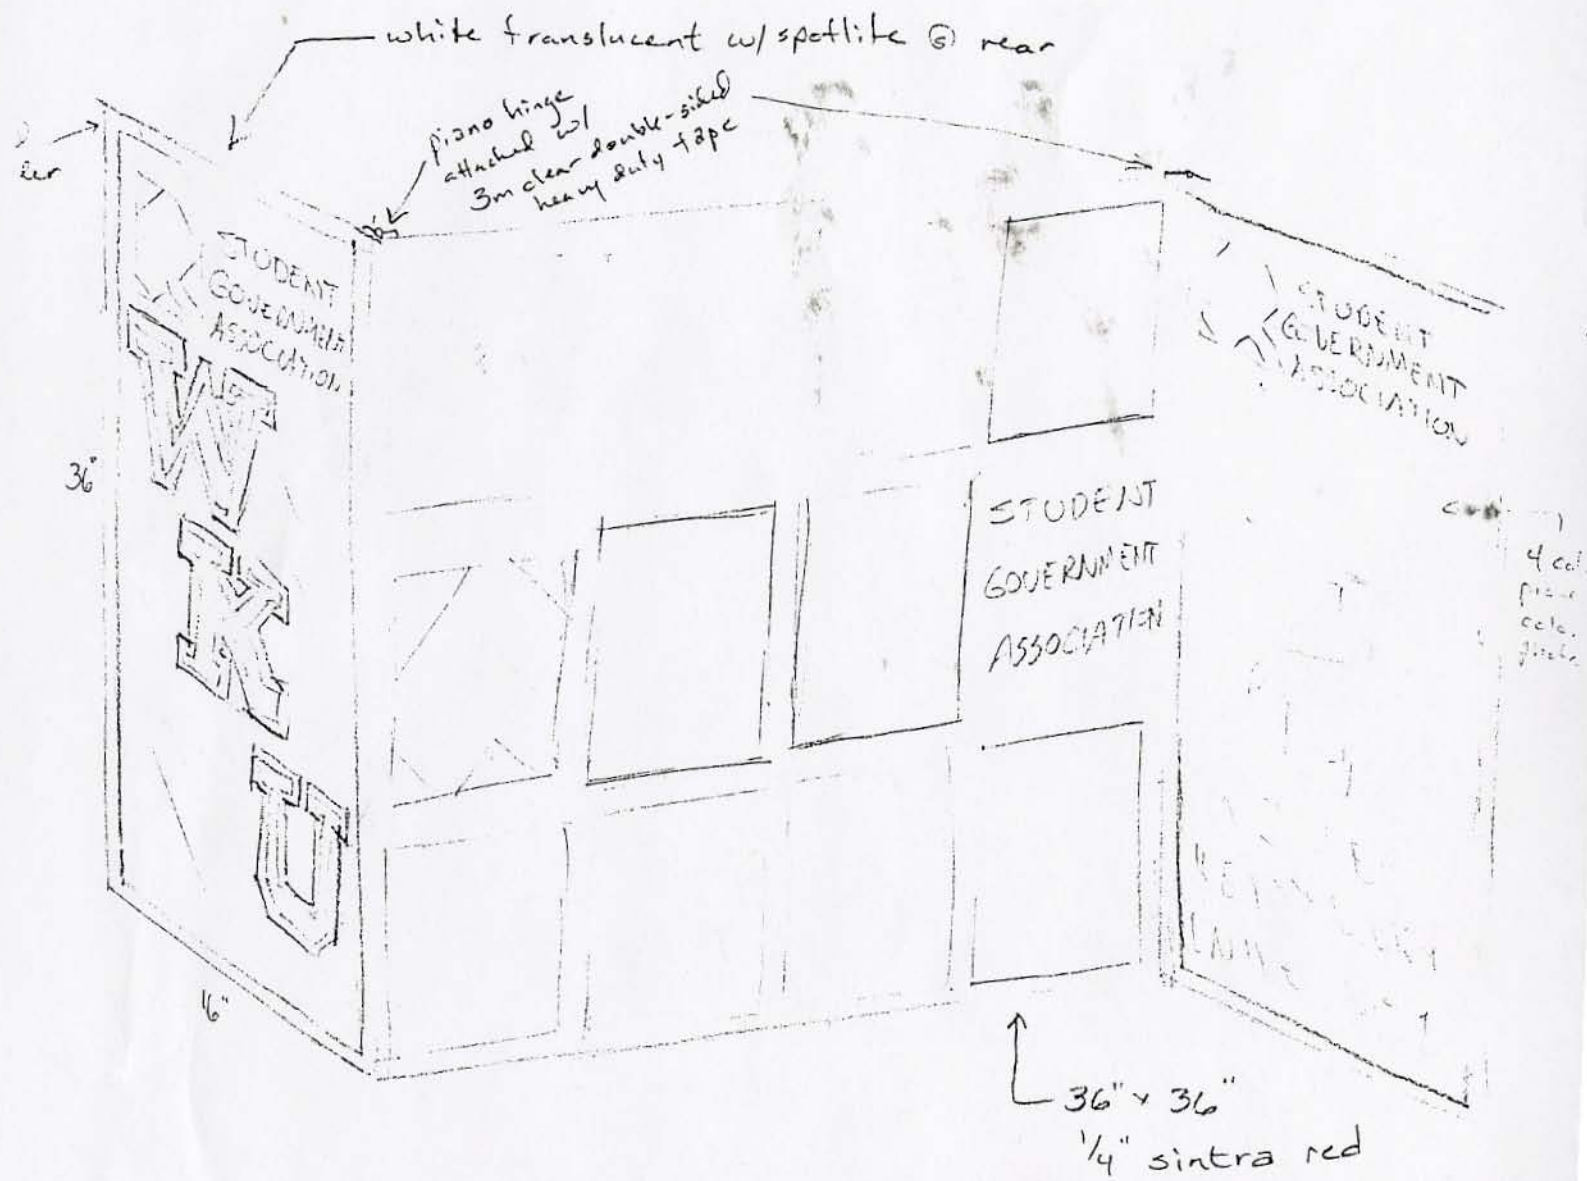 white translucent w/ spotlite @ rear
piano hinge
attached w/
3m clear double-sided
heavy duty tape
STUDENT
GOVERNMENT
ASSOCIATION
WKU
36"
16"
STUDENT
GOVERNMENT
ASSOCIATION
STUDENT
GOVERNMENT
ASSOCIATION
36" x 36"
1/4" sintra red